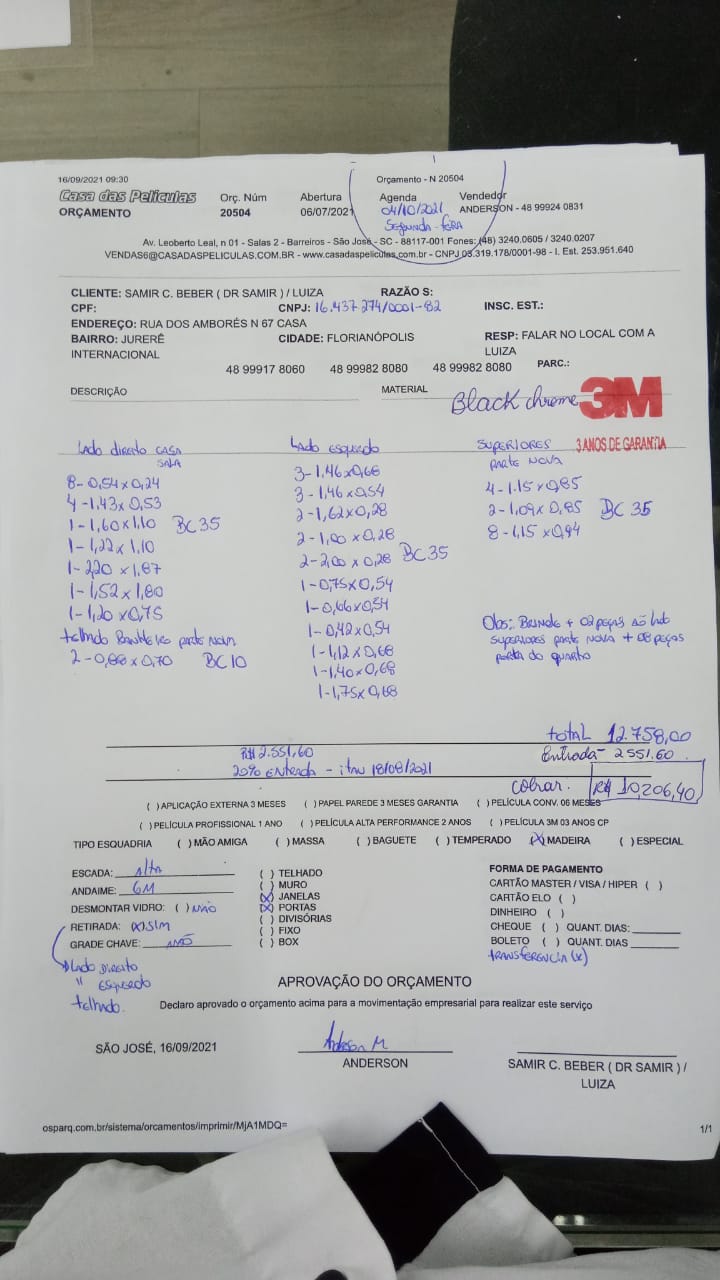 16/09/2021 09:30
Orçamento - N 20504
Casa das Películas
ORÇAMENTO
Orç. Núm
20504
Abertura
06/07/2021
Agenda
04/10/2021
Segunda-feira
Vendedor
ANDERSON - 48 99924 0831
Av. Leoberto Leal, n 01 - Salas 2 - Barreiros - São José - SC - 88117-001 Fones: (48) 3240.0605 / 3240.0207
VENDAS6@CASADASPELICULAS.COM.BR - www.casadaspeliculas.com.br - CNPJ 05.319.178/0001-98 - I. Est. 253.951.640
CLIENTE: SAMIR C. BEBER ( DR SAMIR ) / LUIZA RAZÃO S:
CPF: CNPJ: 16.437.274/0001-82 INSC. EST.:
ENDEREÇO: RUA DOS AMBORÉS N 67 CASA
BAIRRO: JURERÊ INTERNACIONAL
CIDADE: FLORIANÓPOLIS
RESP: FALAR NO LOCAL COM A LUIZA
48 99917 8060 48 99982 8080 48 99982 8080 PARC.:
DESCRIÇÃO MATERIAL
Black chrome 3M
3 ANOS DE GARANTIA
Lado direito CASA
SALA
8-0,54x0,24
4-1,43x0,53
1-1,60x1,10 BC35
1-1,22x1,10
1-2,20x1,87
1-1,52x1,80
1-1,20x0,75
telhado Banheiro parte nova
2-0,88x0,70 BC10
Lado esquerdo
3-1,46x0,68
3-1,46x0,54
2-1,62x0,28
2-1,00x0,28
2-2,00x0,28 BC35
1-0,75x0,54
1-0,66x0,54
1-0,42x0,54
1-1,12x0,68
1-1,40x0,68
1-1,75x0,68
SUPERIORES
parte nova
4-1.15x0,85
2-1,09x0,85 BC 35
8-1,15x0,94
Obs: BRINDE + 02 peças ao lado
superiores parte nova + 08 peças
porta do quarto
total 12.758,00
R$ 2.551,60
Entrada - 2551.60
20% entrada - itau 18/08/2021
cobrar. R$ 10,206,40
( ) APLICAÇÃO EXTERNA 3 MESES ( ) PAPEL PAREDE 3 MESES GARANTIA ( ) PELÍCULA CONV. 06 MESES
( ) PELÍCULA PROFISSIONAL 1 ANO ( ) PELÍCULA ALTA PERFORMANCE 2 ANOS ( ) PELÍCULA 3M 03 ANOS CP
TIPO ESQUADRIA ( ) MÃO AMIGA ( ) MASSA ( ) BAGUETE ( ) TEMPERADO (X) MADEIRA ( ) ESPECIAL
ESCADA: Alta
ANDAIME: 6M
DESMONTAR VIDRO: ( ) NÃO
RETIRADA: (X) SIM
GRADE CHAVE: NÃO
Lado Direito
" Esquerdo
telhado.
( ) TELHADO
( ) MURO
(X) JANELAS
(X) PORTAS
( ) DIVISÓRIAS
( ) FIXO
( ) BOX
FORMA DE PAGAMENTO
CARTÃO MASTER / VISA / HIPER ( )
CARTÃO ELO ( )
DINHEIRO ( )
CHEQUE ( ) QUANT. DIAS:
BOLETO ( ) QUANT. DIAS
TRANSFERENCIA (X)
APROVAÇÃO DO ORÇAMENTO
Declaro aprovado o orçamento acima para a movimentação empresarial para realizar este serviço
SÃO JOSÉ, 16/09/2021
Anderson M
ANDERSON
SAMIR C. BEBER ( DR SAMIR ) /
LUIZA
osparq.com.br/sistema/orcamentos/imprimir/MjA1MDQ=
1/1